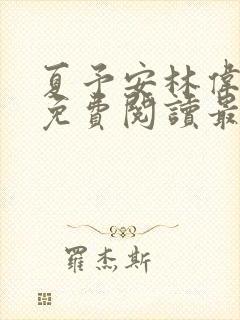 夏予安林偉
免費閱讀最
羅杰斯